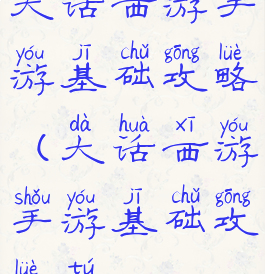 大话西游手
yóu jī chǔ gōng lüè
游基础攻略
dà huà xī yóu
(大话西游
shǒu yóu jī chǔ gōng
手游基础攻
lüè tú